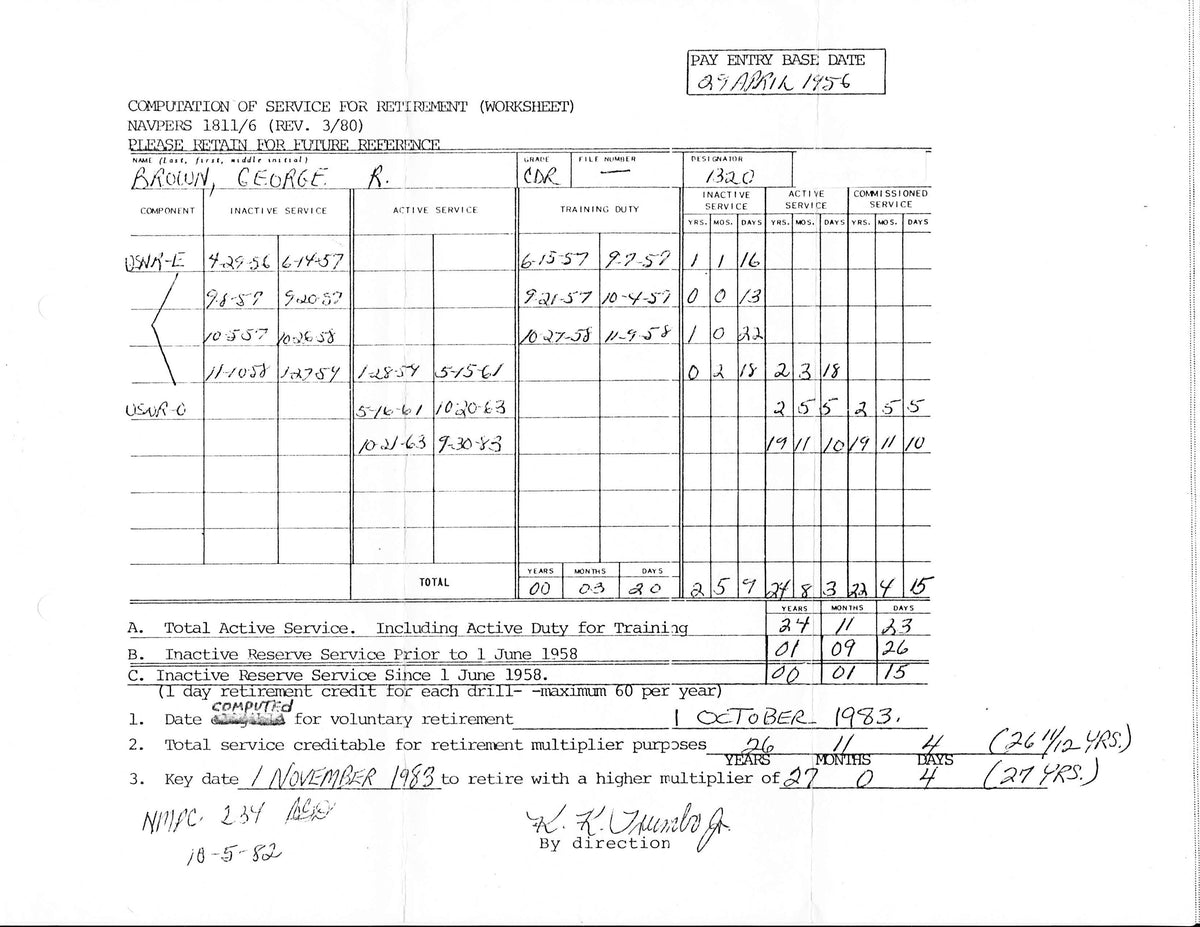 PAY ENTRY BASE DATE
29 APRIL 1956
COMPUTATION OF SERVICE FOR RETIREMENT (WORKSHEET)
NAVPERS 1811/6 (REV. 3/80)
PLEASE RETAIN FOR FUTURE REFERENCE
NAME (Last, first, middle initial) GRADE FILE NUMBER DESIGNATOR
BROWN, GEORGE R. CDR — 1320
COMPONENT INACTIVE SERVICE ACTIVE SERVICE TRAINING DUTY INACTIVE SERVICE ACTIVE SERVICE COMMISSIONED SERVICE
YRS. MOS. DAYS YRS. MOS. DAYS YRS. MOS. DAYS
USNR-E 4-29-56 6-14-57 6-15-57 9-7-57 1 1 16
9-8-57 9-20-57 9-21-57 10-4-57 0 0 13
10-5-57 10-26-58 10-27-58 11-9-58 1 0 22
11-10-58 1-27-59 1-28-59 5-15-61 0 2 18 2 3 18
USNR-O 5-16-61 10-20-63 2 5 5 2 5 5
10-21-63 9-30-83 19 11 10 19 11 10
YEARS MONTHS DAYS
TOTAL 00 03 20 2 5 9 24 8 3 22 4 15
YEARS MONTHS DAYS
A. Total Active Service. Including Active Duty for Training 24 11 23
B. Inactive Reserve Service Prior to 1 June 1958 01 09 26
C. Inactive Reserve Service Since 1 June 1958. 00 01 15
(1 day retirement credit for each drill- -maximum 60 per year)
COMPUTED
1. Date for voluntary retirement 1 OCTOBER 1983.
2. Total service creditable for retirement multiplier purposes 26 11 4 (26 11/12 YRS.)
YEARS MONTHS DAYS
3. Key date 1 NOVEMBER 1983 to retire with a higher multiplier of 27 0 4 (27 YRS.)
NMPC 234
K. K. Trumbo Jr.
By direction
10-5-82